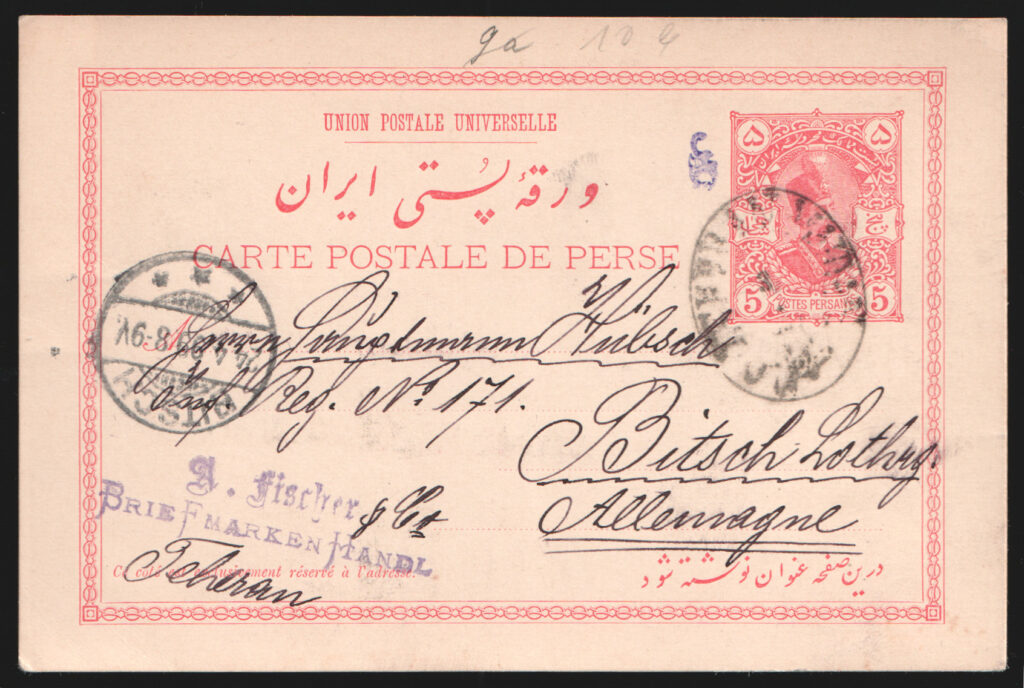 ga 10
UNION POSTALE UNIVERSELLE
ورقهٔ پُستی ایران
CARTE POSTALE DE PERSE
۵ ۵
5 POSTES PERSANES 5
Herrn Hauptmann Hübsch
Inf. Reg. No. 171.
Bitsch Lothrg.
Allemagne
BITSCH
8-9V.
TEHERAN
A. Fischer
& Co
BRIEFMARKEN HANDL
Teheran
Ce côté est exclusivement réservé à l'adresse.
درین صفحه عنوان نوشته شود